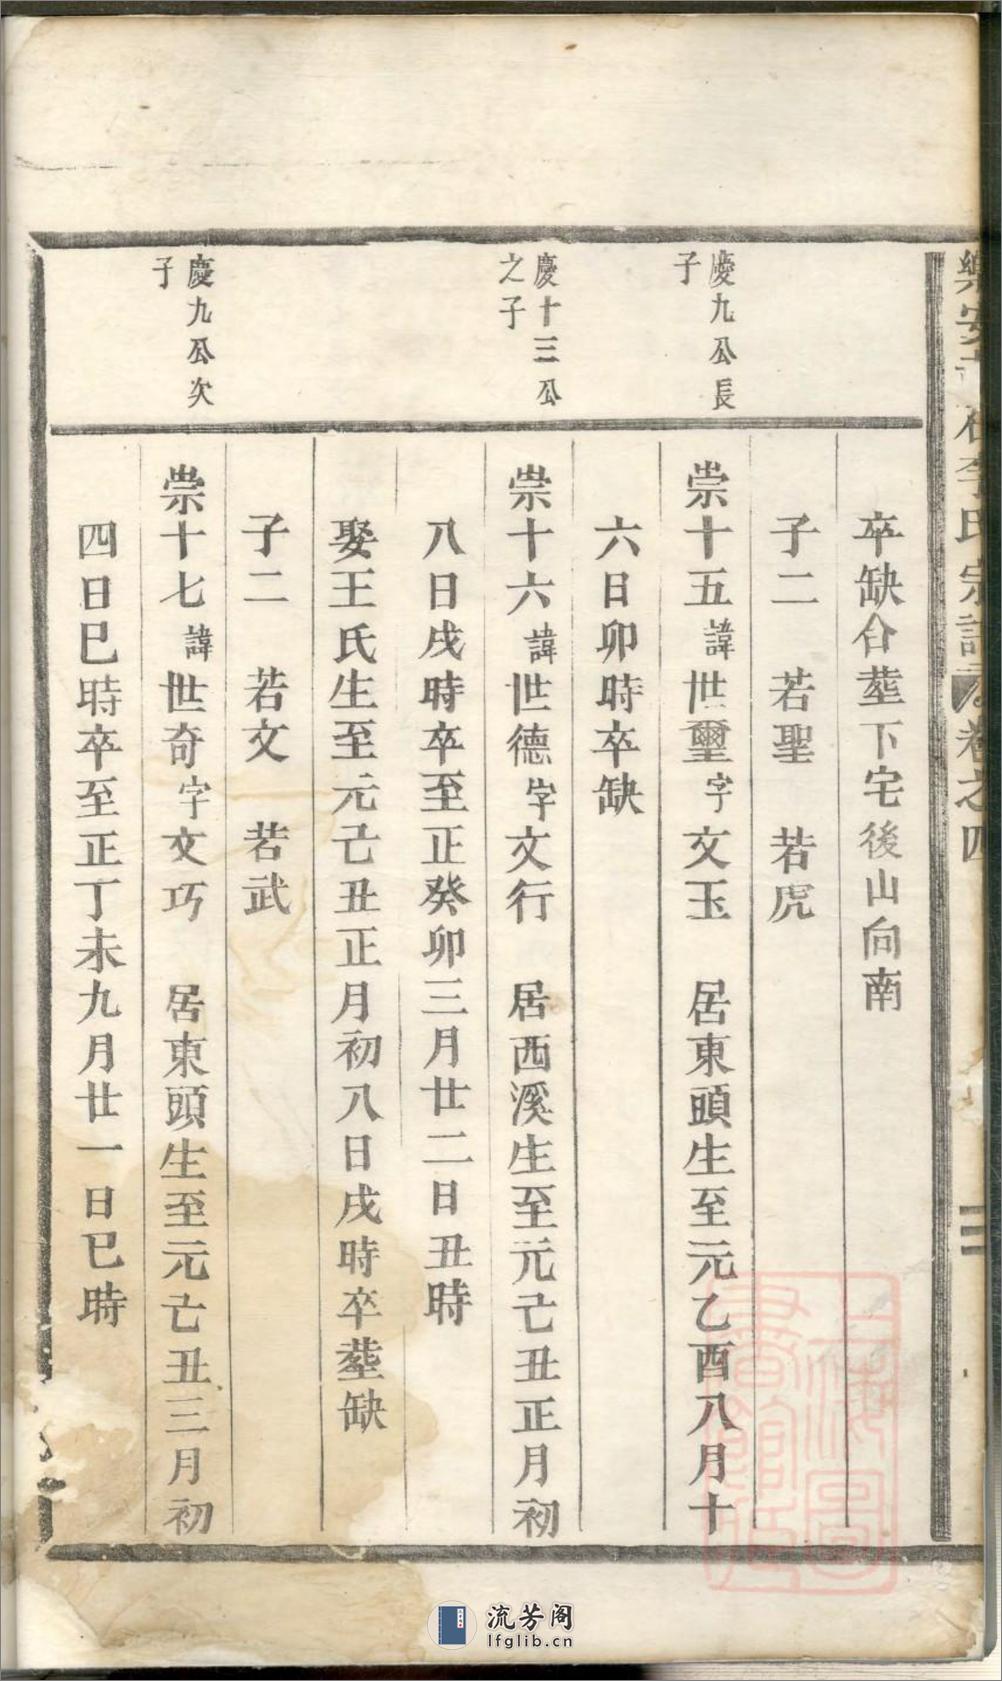 卒缺合塟下宅後山向南
子二 若聖 若虎
慶九公長
子
崇十五諱世璽字文玉 居東頭生至元乙酉八月十
六日卯時卒缺
慶十三公
之子
崇十六諱世德字文行 居西溪生至元己丑正月初
八日戌時卒至正癸卯三月廿二日丑時
娶王氏生至元己丑正月初八日戌時卒塟缺
子二 若文 若武
慶九公次
子
崇十七諱世奇字文巧 居東頭生至元己丑三月初
四日巳時卒至正丁未九月廿一日巳時
上海圖
書館藏
流芳阁
lfglib.cn